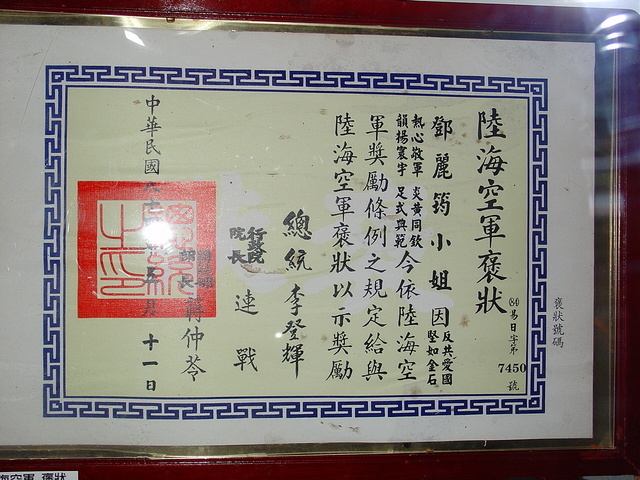 陸海空軍褒狀
褒狀號碼
(84)易日字第
7450
號
鄧麗筠小姐因反共愛國
堅如金石
熱心敬軍 炎黃同欽
韻揚寰宇 足式典範
今依陸海空
軍獎勵條例之規定給與
陸海空軍褒狀以示獎勵
總統 李登輝
行政院
院長 連戰
部長 蔣仲苓
中華民國
年 月 十一日
海空軍 褒狀